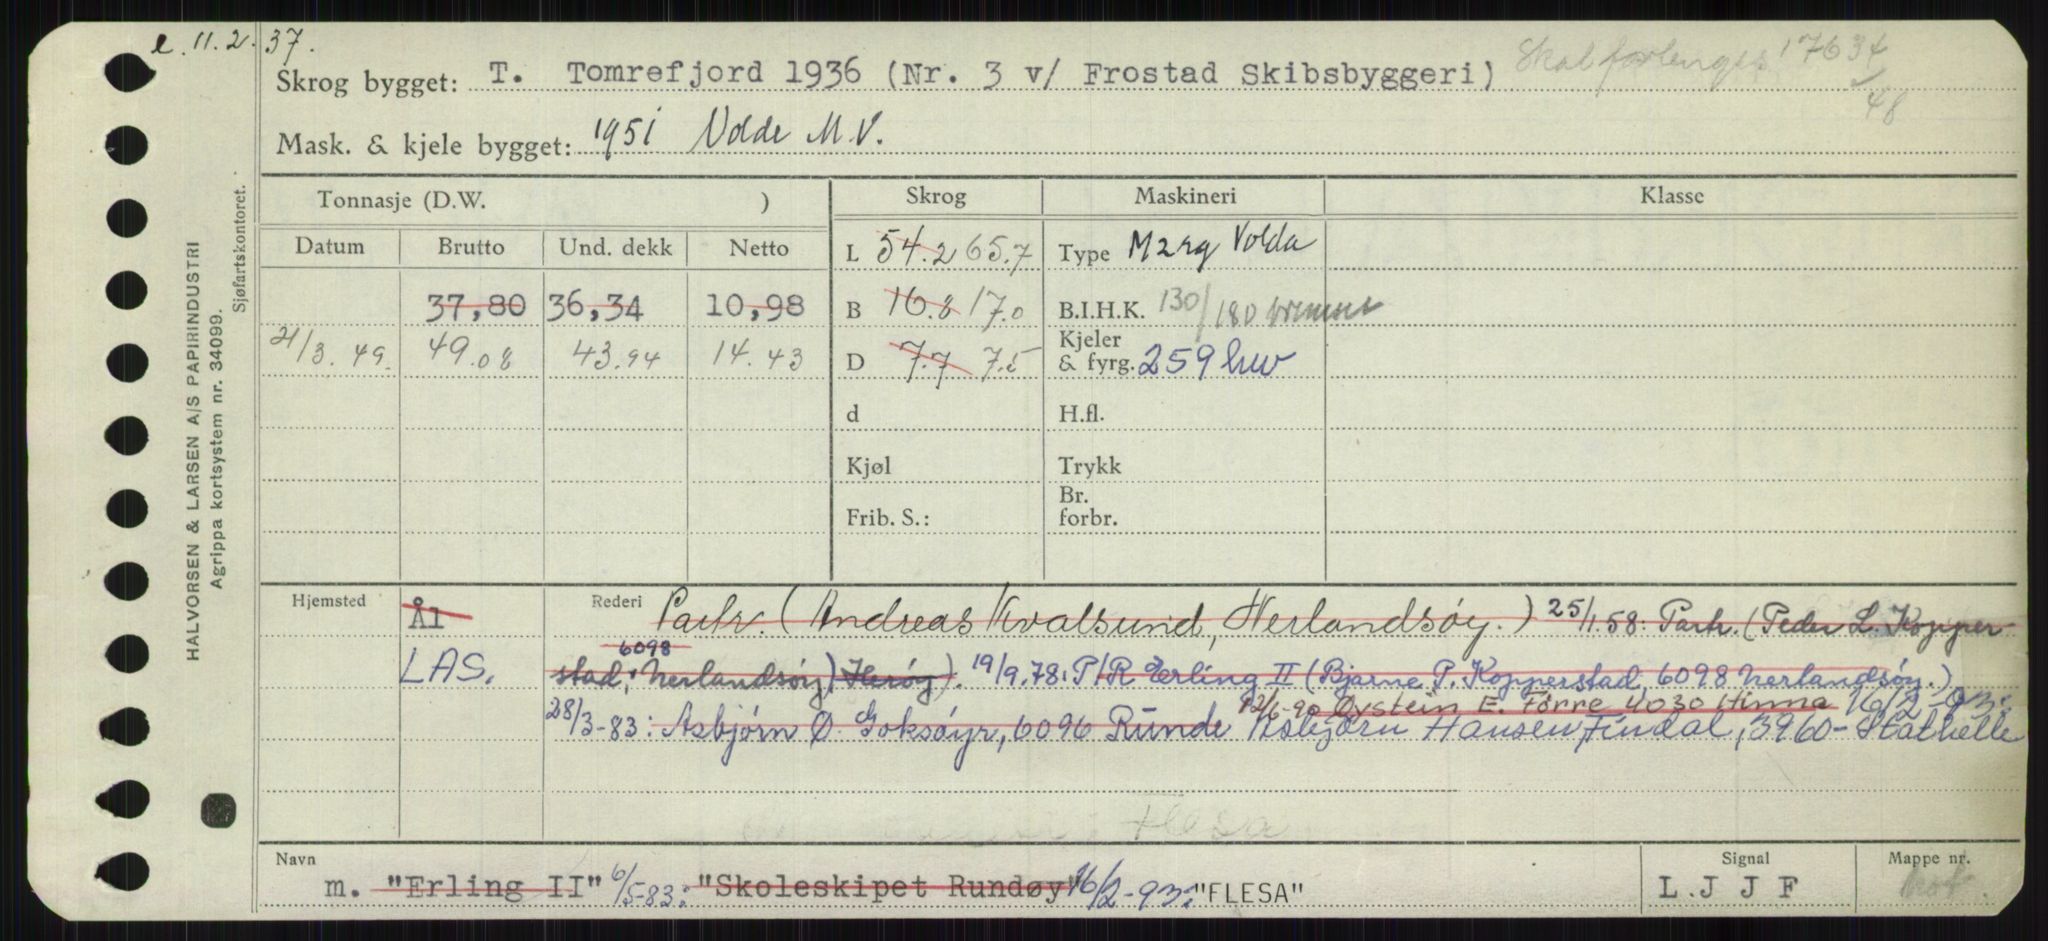 e. 11.2.37.
Skrog bygget: T. Tomrefjord 1936 (Nr. 3 v/ Frostad Skibsbyggeri) Skal forlenges 17634/48
Mask. & kjele bygget: 1951 Volda M.V.
Tonnasje (D.W. ) Skrog Maskineri Klasse
Datum Brutto Und. dekk Netto L 54.2 65.7 Type M2rg Volda
37,80 36,34 10,98 B 16.8 17.0 B.I.H.K. 130/180 bremse
21/3.49. 49.08 43.94 14.43 D 7.7 7.5 Kjeler & fyrg. 259 hw
d H.fl.
Kjøl Trykk
Frib. S.: Br. forbr.
Hjemsted Ål Rederi Partr. (Andreas Kvalsund, Nerlandsøy.) 25/1.58: Partr. (Peder L. Kopper-
6098
LAS. stad, Nerlandsøy) (Herøy). 19/9.78: P/R Erling II (Bjarne P. Kopperstad, 6098 Nerlandsøy.)
12/6-90 Øystein E. Førre 4030 Hinna 16/2-93:
28/3-83: Asbjørn Ø. Goksøyr, 6096 Runde Asbjørn Hansen Findal, 3960- Stathelle
Flesa
Navn Signal Mappe nr.
m. "Erling II" 6/5-83: "Skoleskipet Rundøy" 16/2-93: "FLESA" L J J F
HALVORSEN & LARSEN A/S PAPIRINDUSTRI
Agrippa kortsystem nr. 34099.
Sjøfartskontoret.